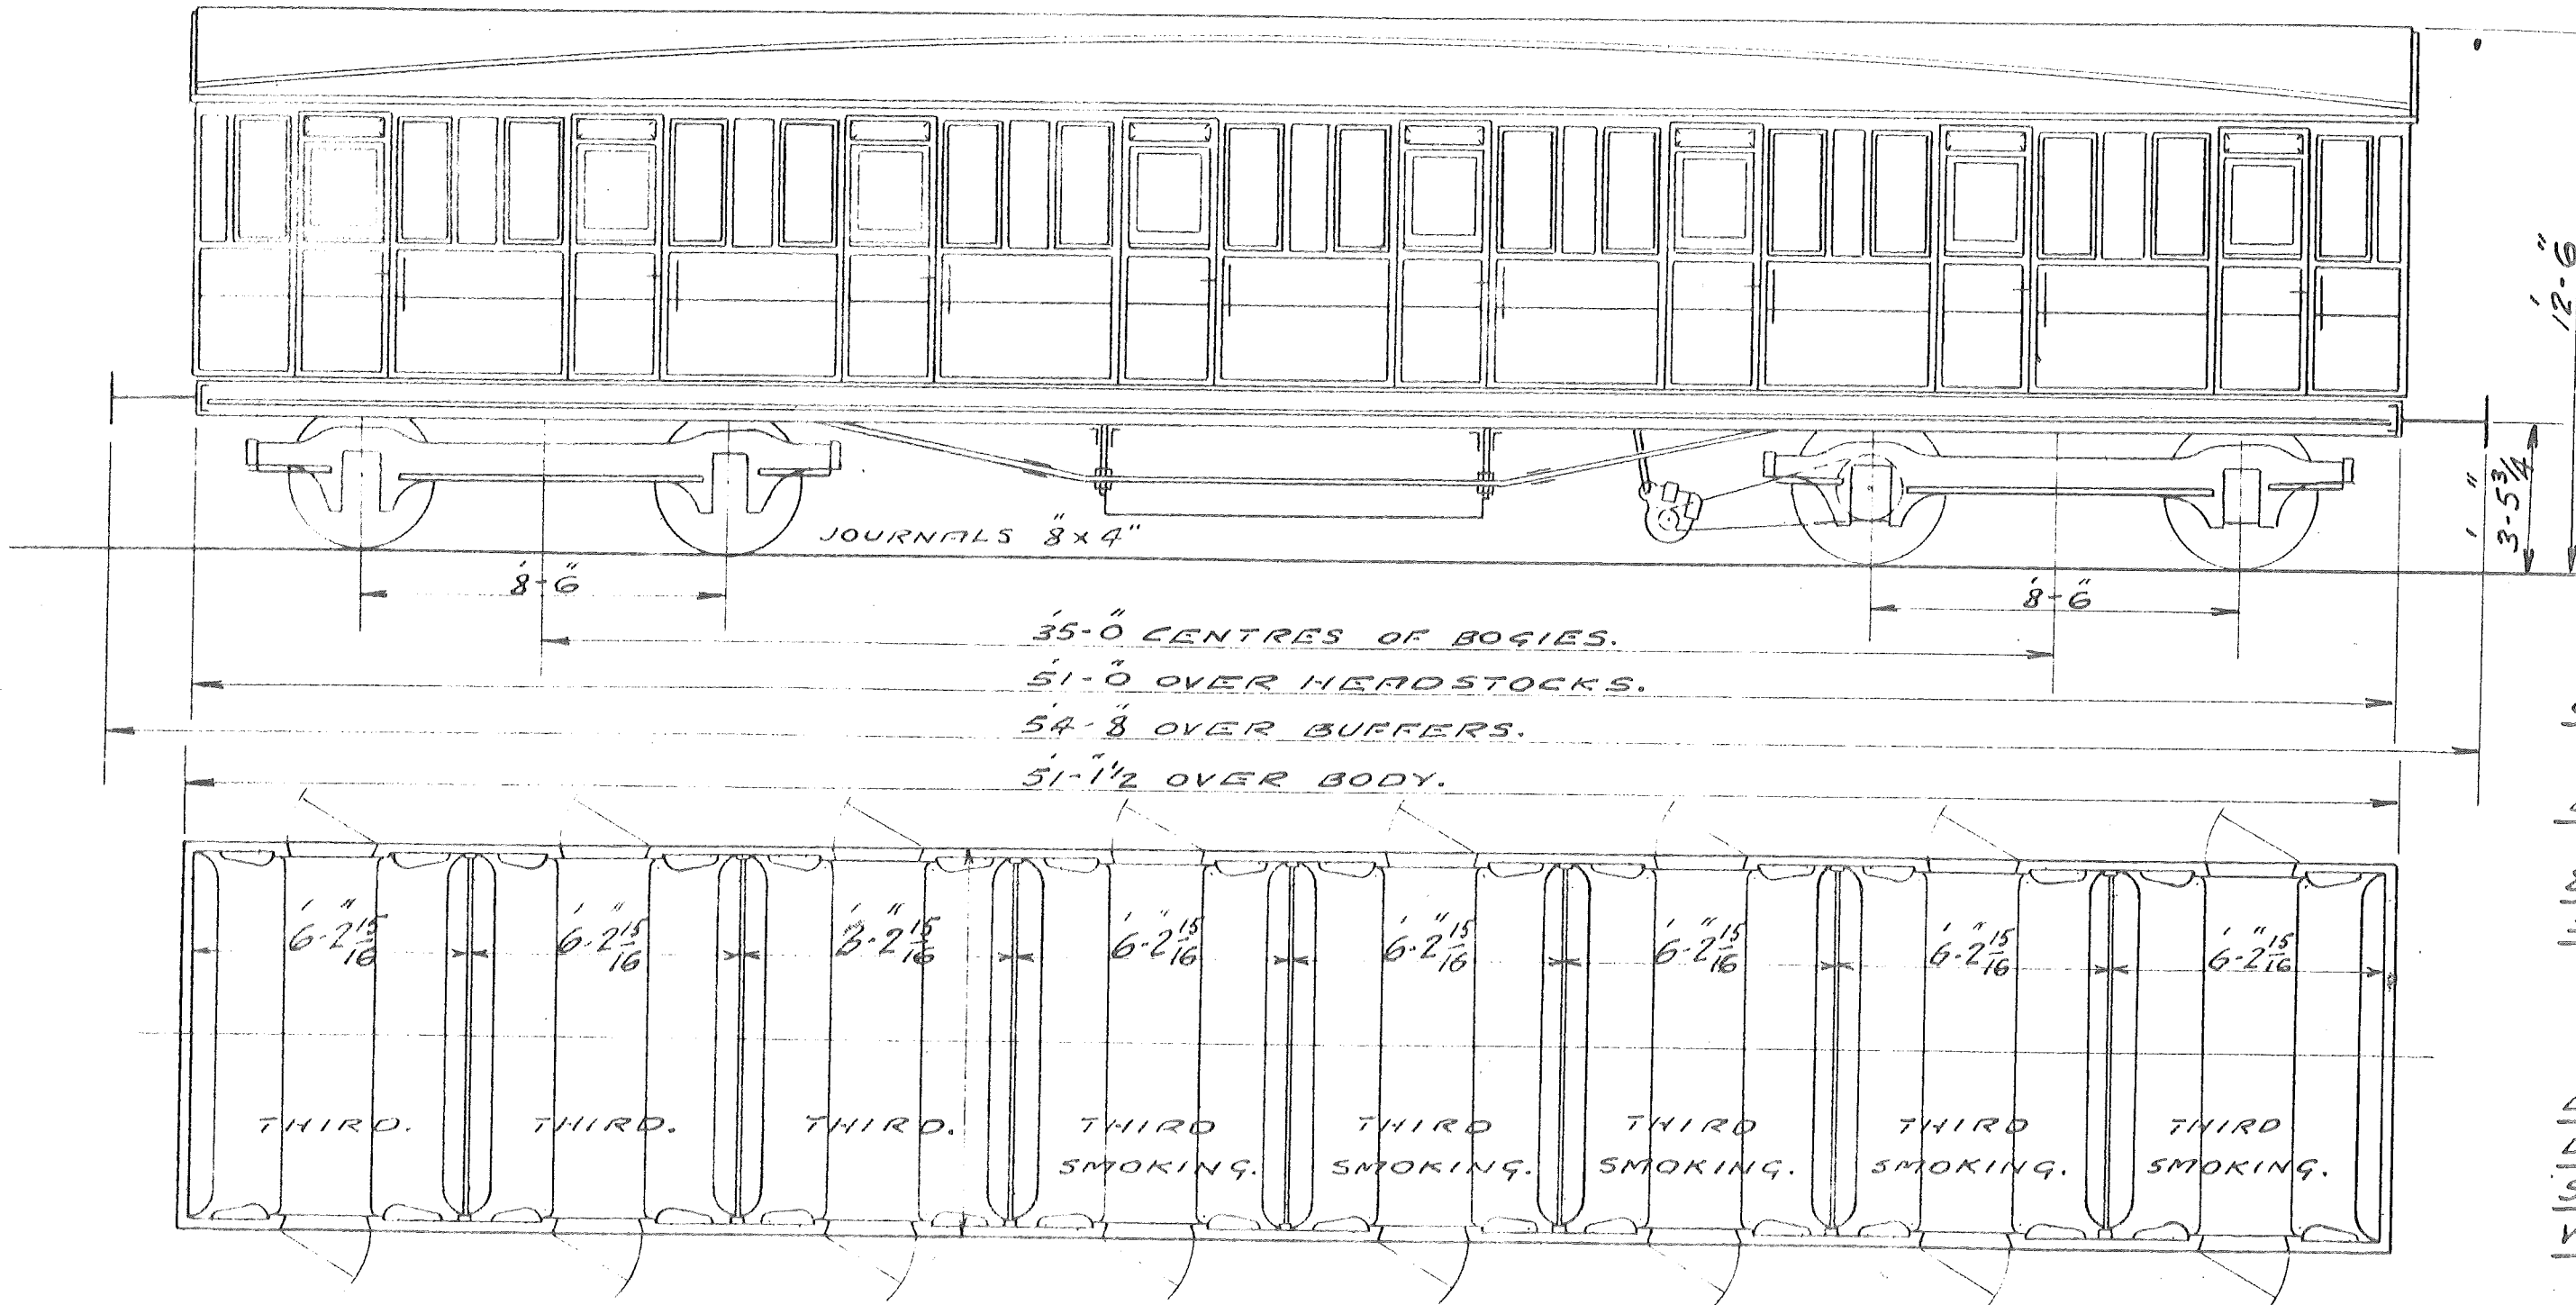 12'-6"
3'-5 3/4"
JOURNALS 8"x4"
8'-6"
8'-6"
35'-0" CENTRES OF BOGIES.
51'-0" OVER HEADSTOCKS.
54'-8" OVER BUFFERS.
51'-1 1/2" OVER BODY.
6'-2 15/16" 6'-2 15/16" 6'-2 15/16" 6'-2 15/16" 6'-2 15/16" 6'-2 15/16" 6'-2 15/16" 6'-2 15/16"
THIRD. THIRD. THIRD. THIRD THIRD THIRD THIRD THIRD
SMOKING. SMOKING. SMOKING. SMOKING. SMOKING.